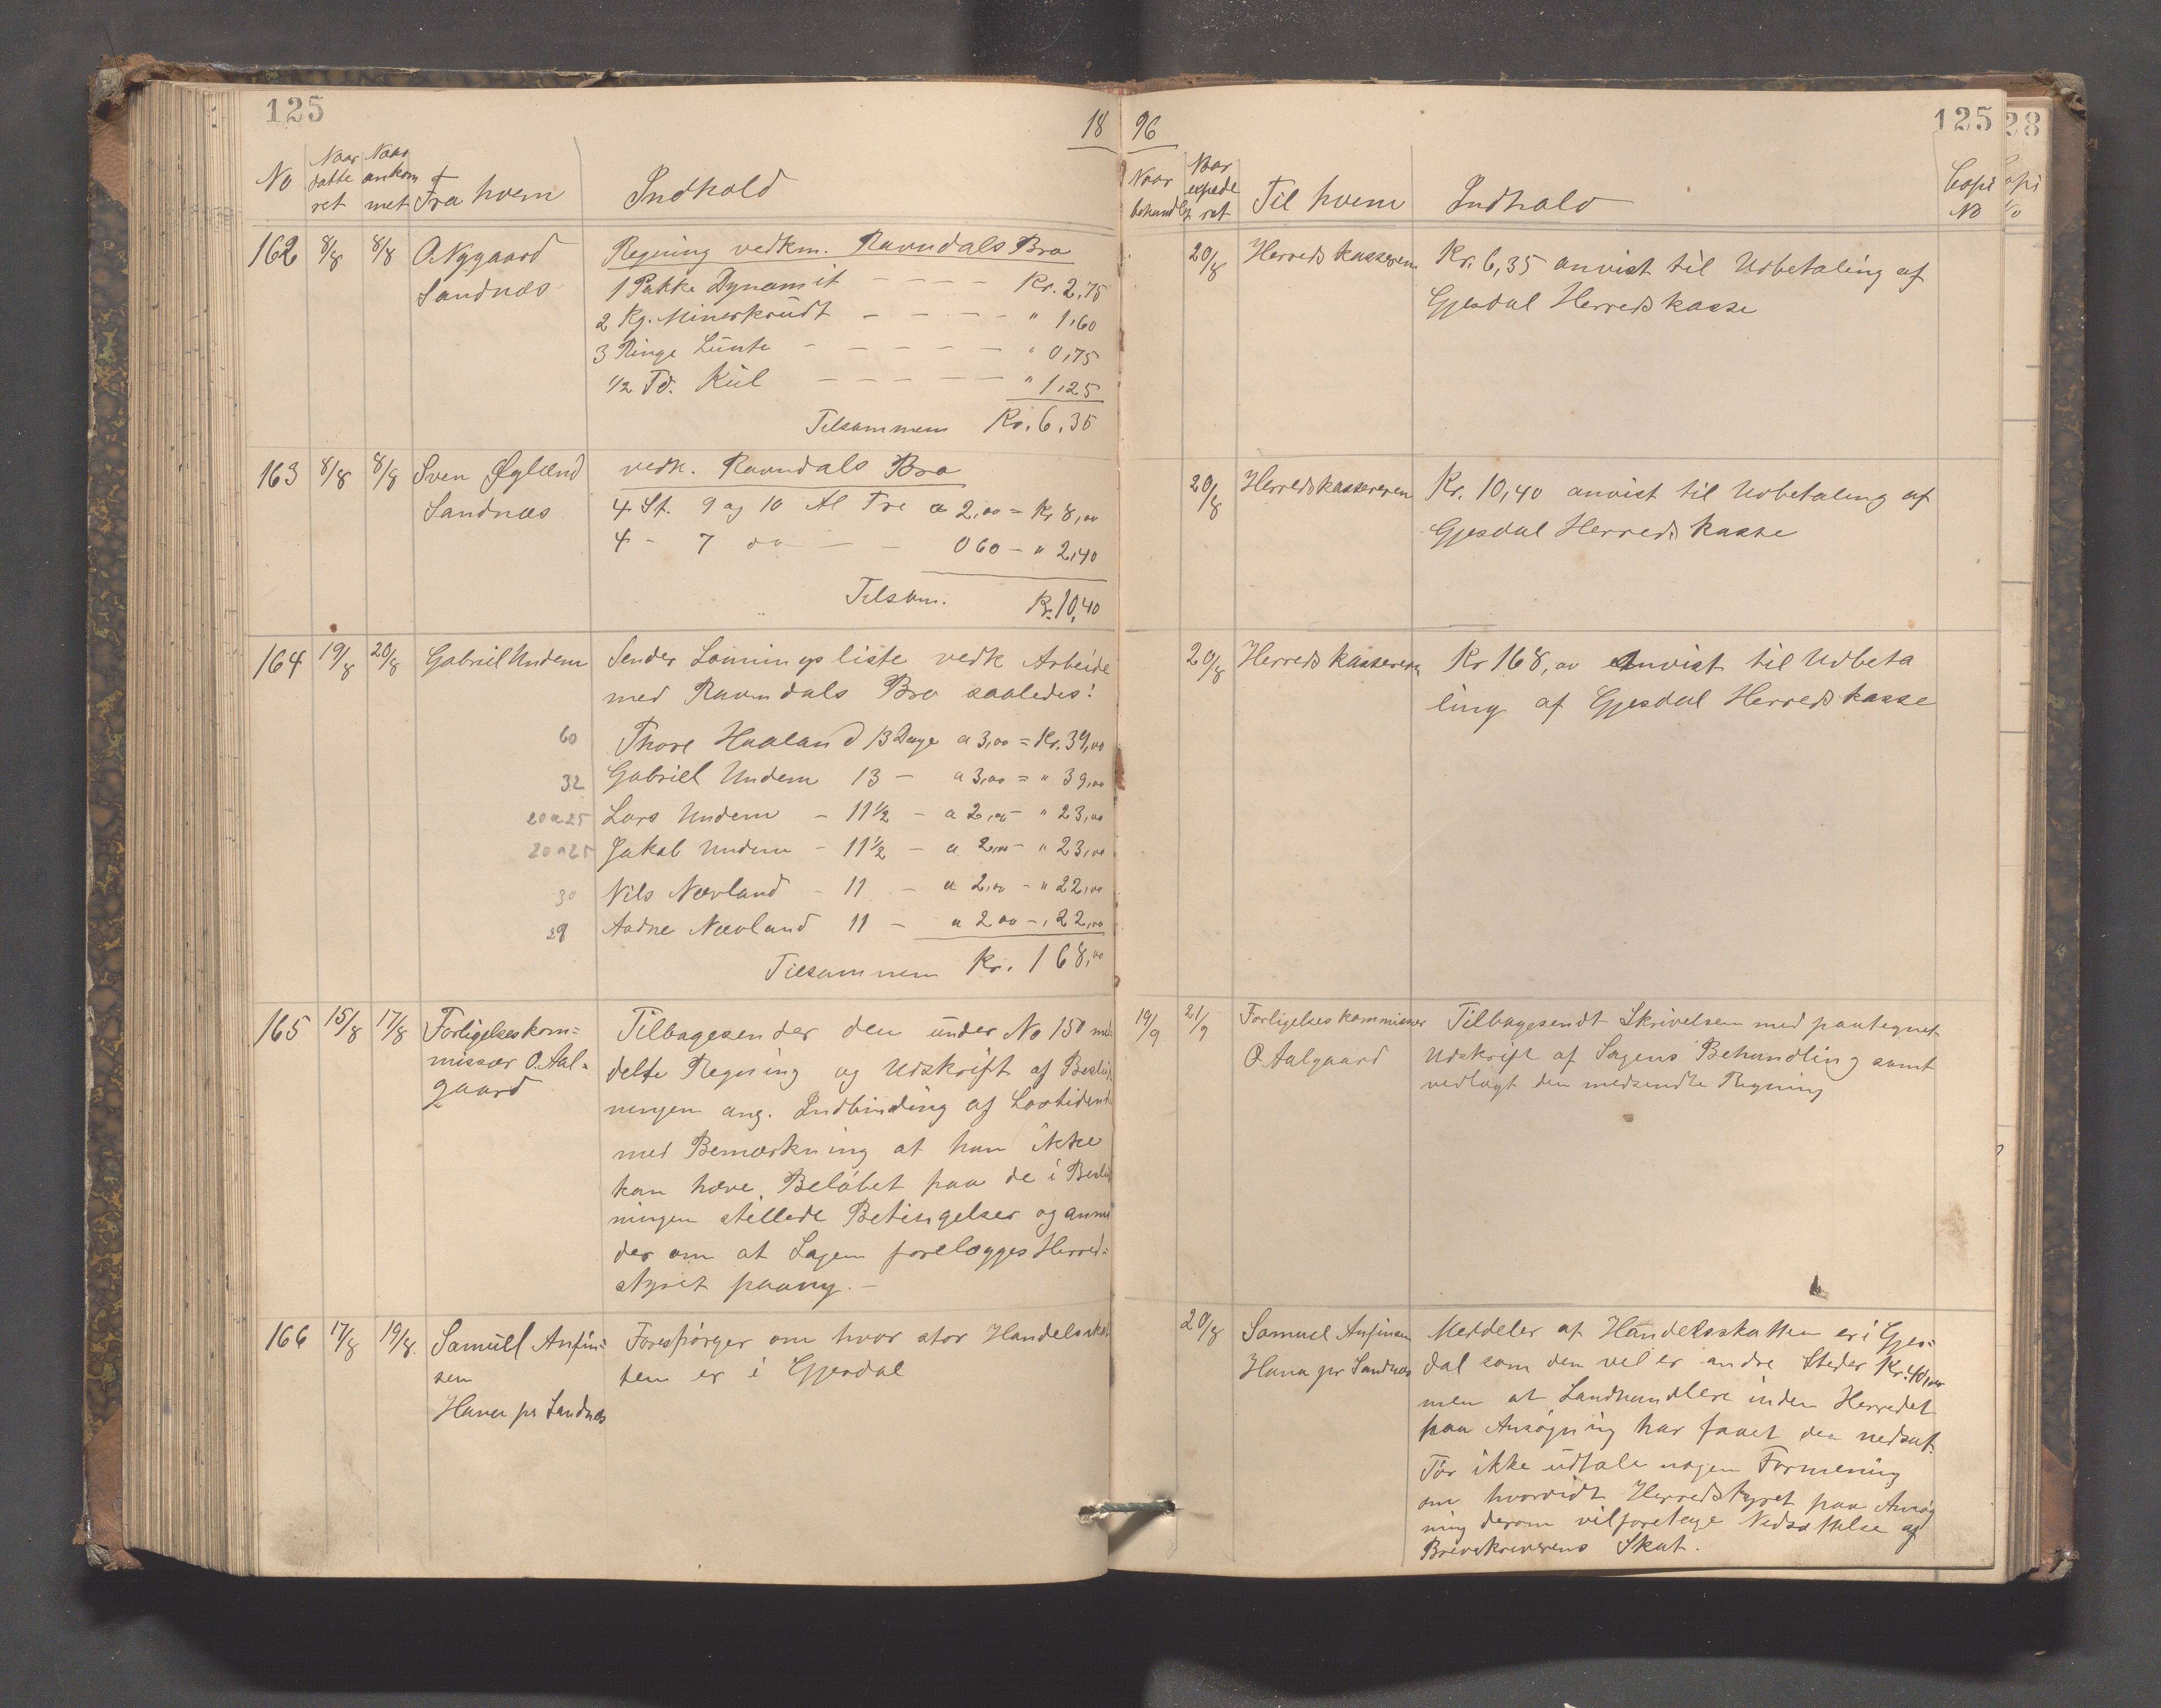 125
18
No
Naar datte ret
Naar ankom met
Fra hvem
Indhold
162 8/8 8/8 O. Nygaard Sandnæs
Regning vedkm. Ravndals Bro
1 Pakke Dynamit — — — Kr. 2,75
2 Kg. Minerkrudt — — — — " 1,60
3 Ringe Lunte — — — — — " 0,75
1/2 Td. Kul — — — — — " 1,25
Tilsammen Kr. 6,35
163 8/8 8/8 Sven Øglænd Sandnæs
vedk. Ravndals Bro
4 St. 9 og 10 Al Træ a 2,00 = Kr 8,00
4 - 7 do — — 0 60 — " 2,40
Tilsam. Kr. 10,40
164 19/8 20/8 Gabriel Undem
Sender Lønningsliste vedk Arbeide
med Ravndals Bro saaledes:
60 Thore Haaland 13 Dage a 3,00 = Kr. 39,00
32 Gabriel Undem 13 — a 3,00 = " 39,00
20 a 25 Lars Undem - 11 1/2 - a 2,00 - " 23,00
20 a 25 Jakob Undem - 11 1/2 - a 2,00 - " 23,00
30 Nils Nævland - 11 - a 2,00 - " 22,00
Aadne Nævland 11 - a 2 00 - " 22,00
Tilsammen Kr. 168,00
165 15/8 17/8 Forligelseskom=
missær O. Aal=
gaard
Tilbagesender den under No 150 med
delte Regning og Udskrift af Beslut
ningen ang. Indbinding af Lovtidende
med Bemærkning at han ikke
kan hæve Beløbet paa de i Beslut
ningen stillede Betingelser og anmo
der om at Sagen forelægges Herred=
styret paany. —
166 17/8 19/8 Samuel Anfin=
sen
Hana pr Sandnæs
Forespørger om hvor stor Handelsskat
ten er i Gjesdal
96
125
28
Naar behandlet
Naar expede ret
Til hvem
Indhold
Copi No
20/8 Herredskasseren
Kr. 6,35 anvist til Udbetaling af
Gjesdal Herredskasse
20/8 Herredskassereren
Kr. 10,40 anvist til Udbetaling af
Gjesdal Herredskasse
20/8 Herredskassereren
Kr 168,00 anvist til Udbeta
ling af Gjesdal Herredskasse
19/9 21/9 Forligelseskommissær
O. Aalgaard
Tilbagesendt Skrivelsen med paategnet
Udskrift af Sagens Behandling samt
vedlagt den medsendte Regning
20/8 Samuel Anfinsen
Hana pr Sandnæs
Meddeler at Handelsskatten er i Gjes=
dal som den vel er andre Steder Kr. 40,00
men at Landhandlere inden Herredet
paa Ansøgning har faaet den nedsat.
Tør ikke udtale nogen Formening
om hvorvidt Herredstyret paa Ansøg
ning derom vil foretage Nedsættelse af
Brevskriverens Skat.